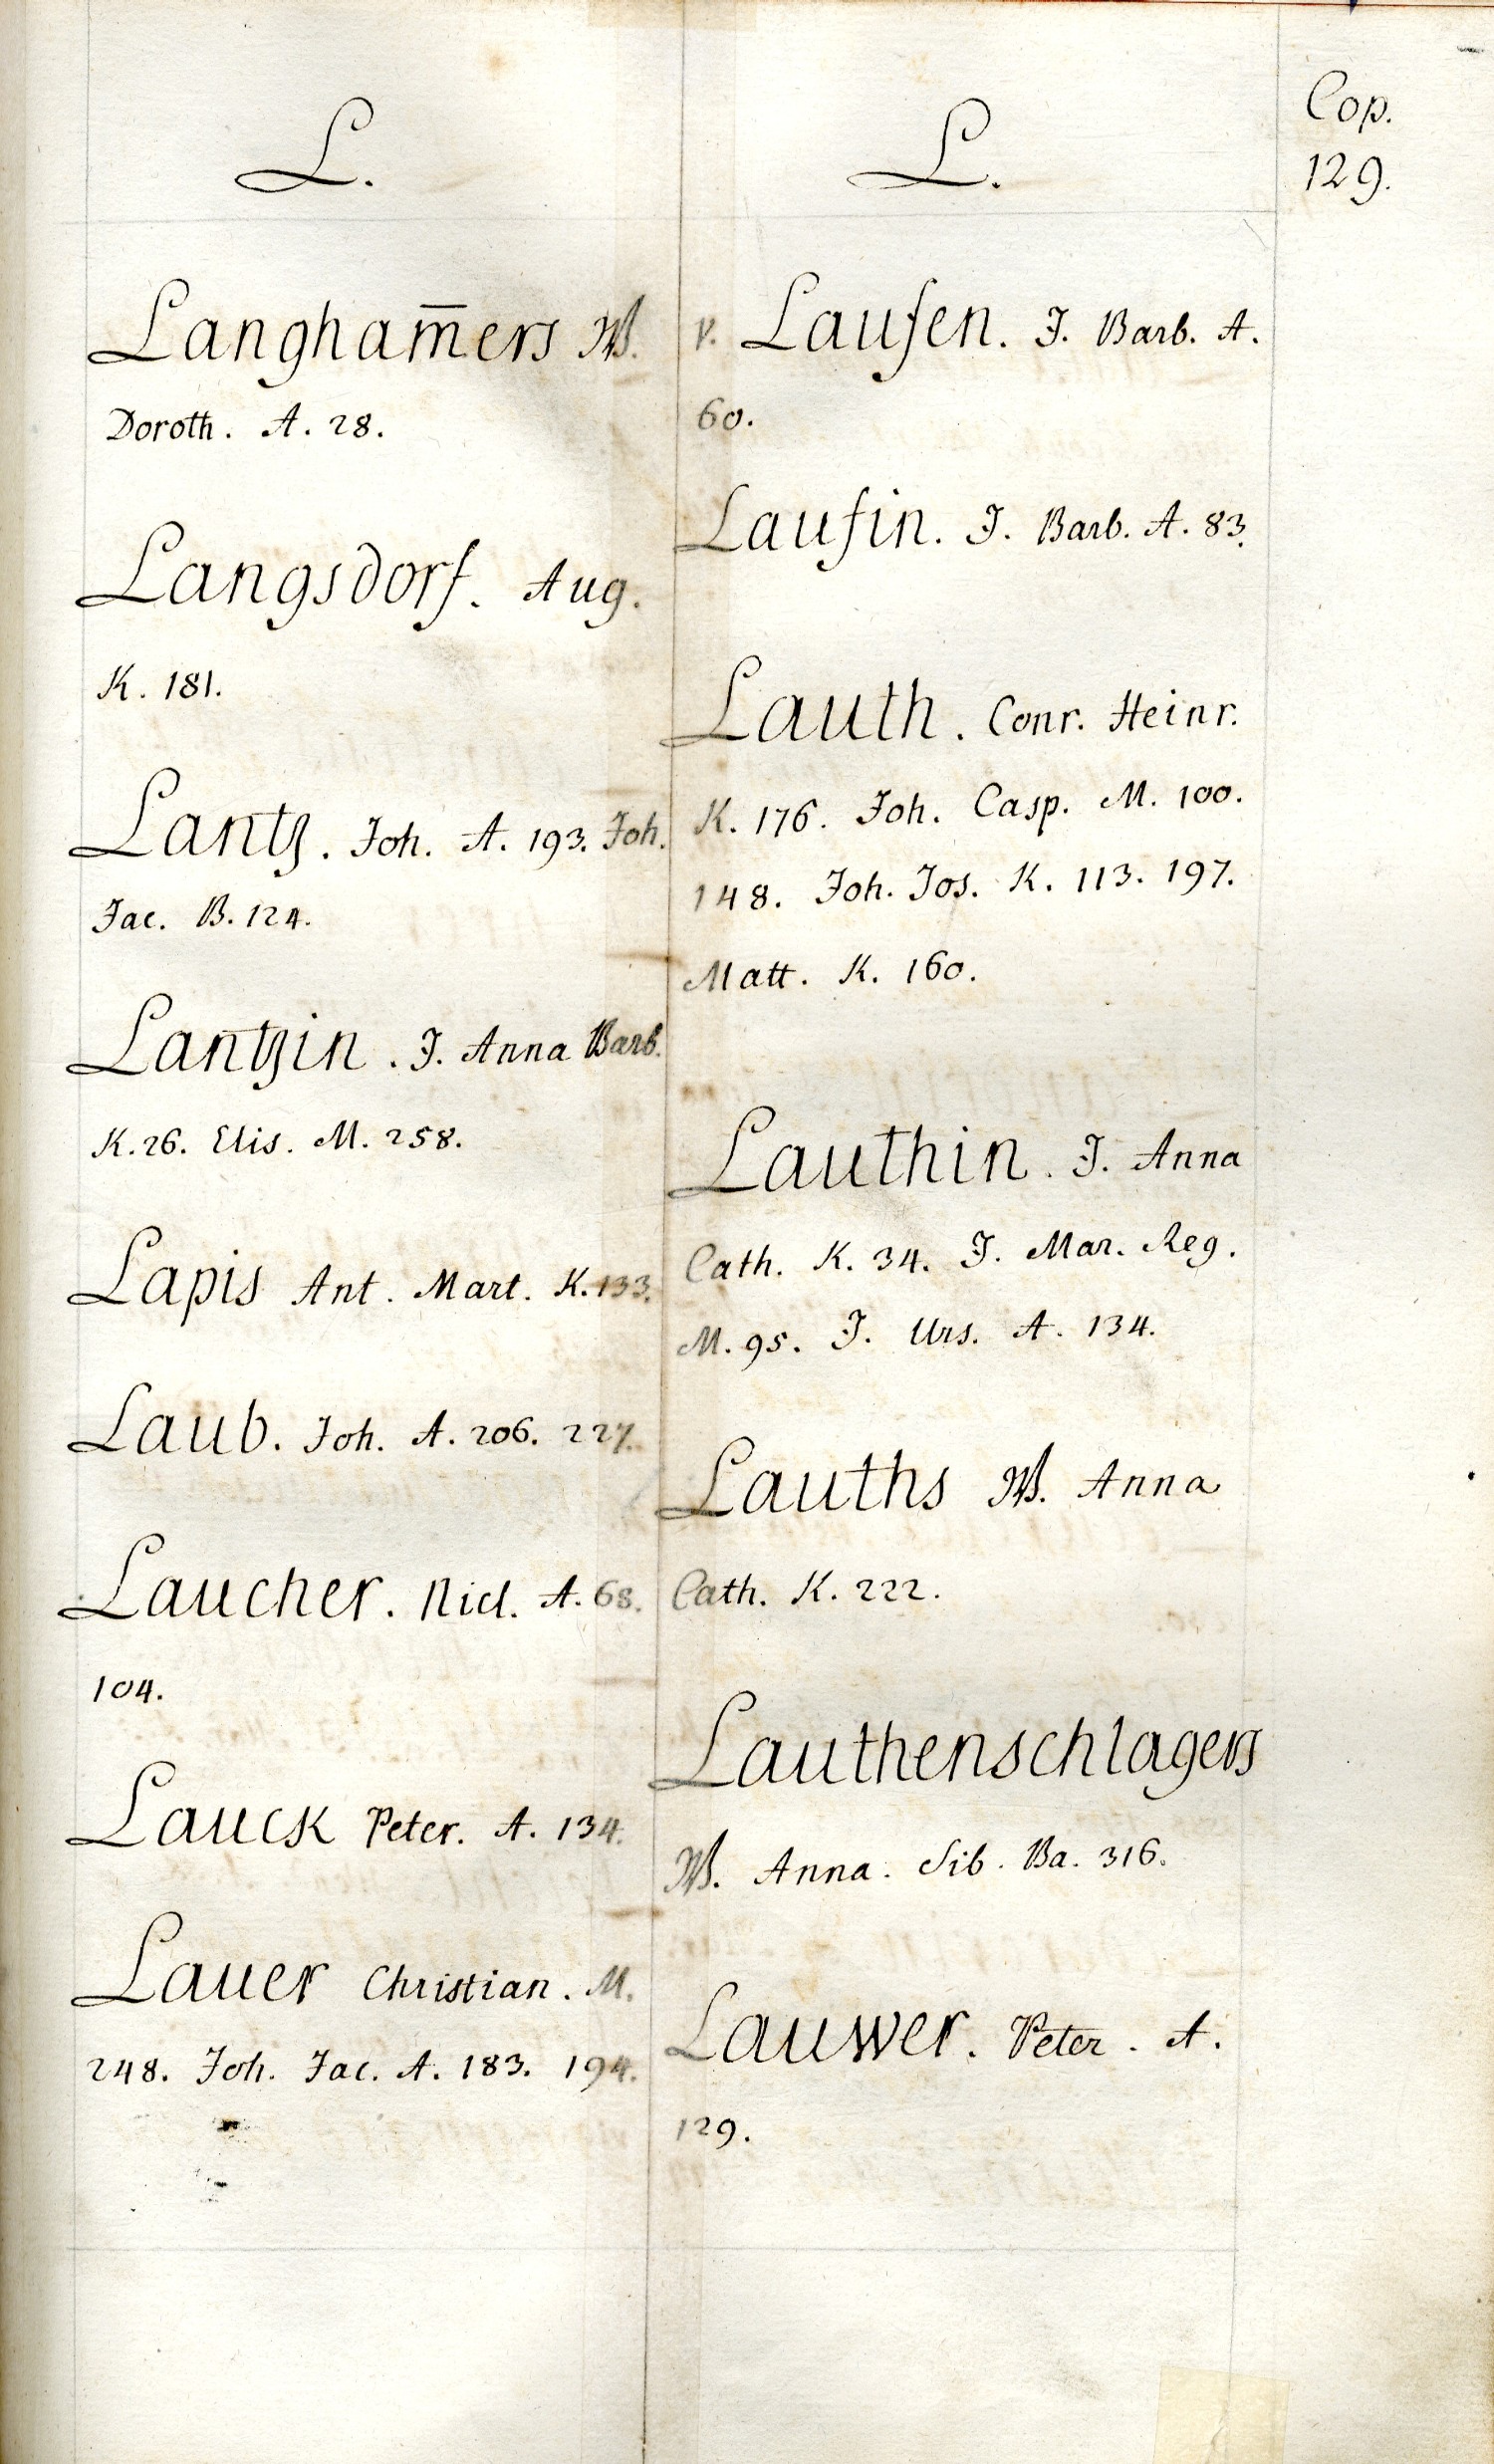 L.
Langham̅ers W.
Doroth. A. 28.
Langsdorf. Aug.
K. 181.
Lantz. Joh. A. 193. Joh.
Jac. B. 124.
Lantzin. J. Anna Barb.
K. 26. Elis. M. 258.
Lapis Ant. Mart. K. 133.
Laub. Joh. A. 206. 227.
Laucher. Nicl. A. 68.
104.
Lauck Peter. A. 134.
Lauer Christian. M.
248. Joh. Jac. A. 183. 194.
L.
v. Laufen. J. Barb. A.
60.
Laufin. J. Barb. A. 83.
Lauth. Conr. Heinr.
K. 176. Joh. Casp. M. 100.
148. Joh. Jos. K. 113. 197.
Matt. K. 160.
Lauthin. J. Anna
Cath. K. 34. J. Mar. Reg.
M. 95. J. Urs. A. 134.
Lauths W. Anna
Cath. K. 222.
Lauthenschlagers
W. Anna. Sib. Ba. 316.
Lauwer. Peter. A.
129.
Cop.
129.